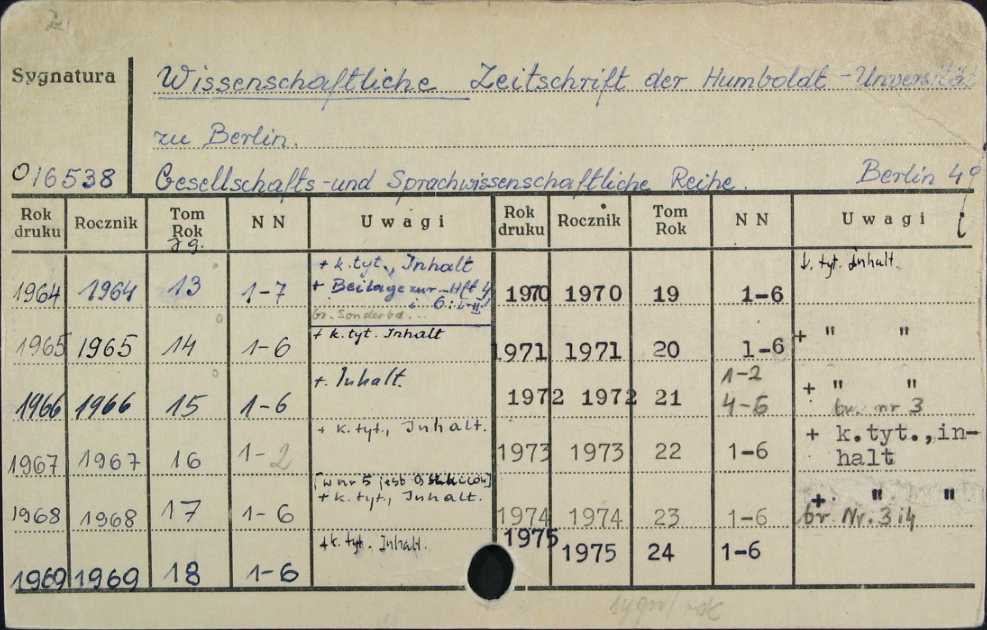 Sygnatura
Wissenschaftliche Zeitschrift der Humboldt-Universität
zu Berlin.
016538
Gesellschafts-und Sprachwissenschaftliche Reihe. Berlin 49
Rok druku Rocznik Tom Rok NN Uwagi Rok druku Rocznik Tom Rok NN Uwagi
Jg.
1964 1964 13 1-7 + k.tyt., Inhalt
+ Beilage zur Hft
1965 1965 14 1-6 + k.tyt. Inhalt
1966 1966 15 1-6 +. Inhalt.
1967 1967 16 1-2 + k.tyt., Inhalt.
1968 1968 17 1-6 [w nr 5 jest
+ k.tyt., Inhalt.
1969 1969 18 1-6 +k.tyt. Inhalt.
1970 1970 19 1-6 k. tyt. Inhalt.
1971 1971 20 1-6 + " "
1972 1972 21 1-2
4-6 + " "
br. nr 3
1973 1973 22 1-6 + k.tyt.,in-
halt
1974 1974 23 1-6 + " "
br Nr. 3 i 4
1975 1975 24 1-6